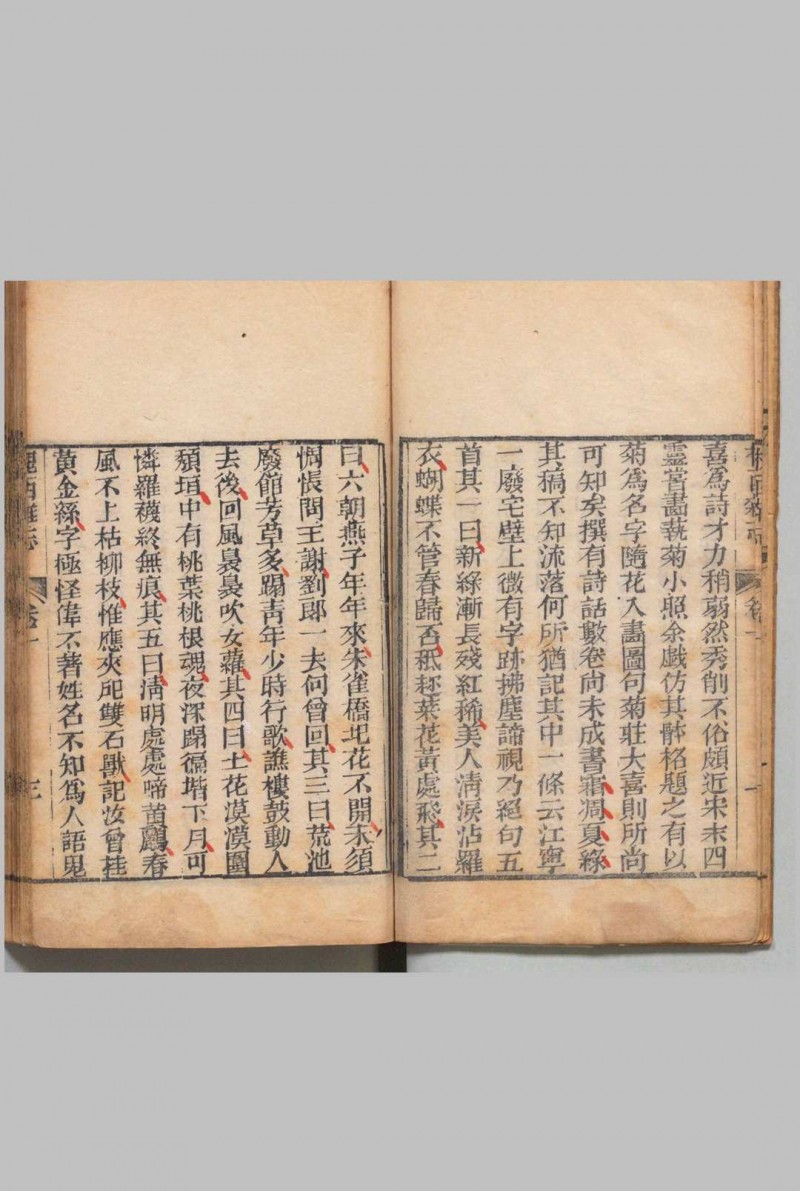 槐西雜志 卷一
喜爲詩才力稍弱然秀削不俗頗近宋末四
靈嘗畫蓺菊小照余戲仿其骵格題之有以
菊爲名字隨花入畫圖句菊莊大喜則所尚
可知矣撰有詩話數卷尚未成書霜凋夏綠
其稿不知流落何所猶記其中一條云江寧
一廢宅壁上微有字跡拂塵諦視乃絕句五
首其一曰新綠漸長殘紅稀美人清淚沾羅
衣蝴蝶不管春歸否秪趂菜花黃處飛其二
曰六朝燕子年年來朱雀橋圯花不開未須
惆悵問王謝劉郎一去何曾回其三曰荒池
廢館芳草多蹋青年少時行歌譙樓鼓動人
去後回風裊裊吹女蘿其四曰土花漠漠圍
頹垣中有桃葉桃根魂夜深蹋徧堦下月可
憐羅襪終無痕其五曰清明處處啼黃鸝春
風不上枯柳枝惟應夾戺雙石獸記汝曾挂
黃金絲字極怪偉不著姓名不知爲人語鬼
槐西雜志 卷一 三